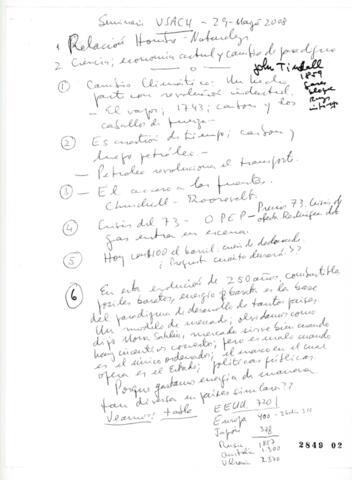 Seminario USACH - 29-Mayo 2008
1 Relación Hombre-Naturaleza
2 Ciencia; economía actual y cambio de paradigma
John Tindall
1859
(1) Cambio Climático: Un
parte con revolución industrial.
- El vapor; 1743; carbon y los
caballos de fuerza.-
(2) Es cuestión de tiempo; carbon y
luego petróleo.-
- Petroleo revoluciona el transporte.
(3) - El acceso a las fuentes.
Churchill - Roosevelt.
(4) Crisis del 73 - OPEP - Precios 73. Crisis de
oferta
gas entra en escena.
(5) Hoy el barril.
¿ Pregunta cuánto durará??
(6) En esta evolución de 250 años, combustible
fosiles baratos, energía barata es la base
del paradigma de desarrollo de tantos países.
Un modelo de mercado; olvidamos como
dijo mercado sirve bien cuando
hay incentivos correctos; pero es malo cuando
es el único ordenador; el marco en el cual
opera es el Estado; políticas públicas.
Porque gastamos energía de manera
tan diversa en países similares??
Veamos: tabla
EEUU 720
Europa 400
Japón 328
Rusia 1887
1.300
Ukrania 2.570
2849 02